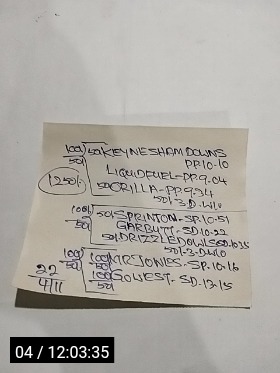 100 50 KEYNESHAM DOWNS
50 PP.10-10
LIQUID FUEL-PP.9-04
1250 50 ORILLA-PP.9-34
50 -3-D.W/O
100 50 SPRINTON-SP.10-51
50 GARBUTT-SD.10-22
50 DRIZZLEDOWLS SD.1035
50 -3-D.W/O
100 100 MRJONES-SP.10-16
50 50
22 100 GOWEST-SD.12-15
4/11 50
04 / 12:03:35